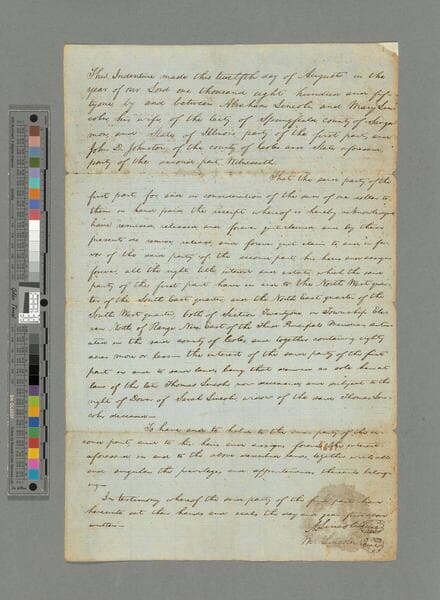 This Indenture made this twelfth day of August in the
year of our Lord one thousand eight hundred and fif-
tyone by and between Abraham Lincoln and Mary Lin-
coln, his wife of the City of Springfield, county of Sanga-
mon, and State of Illinois party of the first part, and
John D. Johnston of the county of Coles and State aforesaid
party of the second part Witnesseth:
That the said party of the
first part for and in consideration of the sum of one dollar to
them in hand paid the receipt whereof is hereby acknowledged
have remised released and forever quit claimed and by these
presents do remise, release, and forever quit claim to and in fa-
vor of the said party of the second part his heirs and assigns
forever all the right title interest and estate which the said
party of the first part have in and to the North West quar-
ter of the South East quarter, and the North East quarter of the
South West quarter, both of Section Twentyone in Township Elev-
en North of Range Nine East of the Third Principal Meridian situ-
ated in the said county of Coles, and together containing eighty
acres more or less— the interest of the said party of the first
part in and to said lands, being that as sole heir at
law of the late Thomas Lincoln now deceased and subject to the
right of Dower of Sarah Lincoln widow of the said Thomas Lin-
coln deceased—
To have and to hold to the said party of the se-
cond part and to his heirs and assigns forever the interest
aforesaid in and to the above described lands, together with all
and singular the privileges and appurtenances thereunto belong-
ing—
In testimony whereof the said party of the first part have
hereunto set their hands and seals the day and year first above
written—
A. Lincoln
M. Lincoln